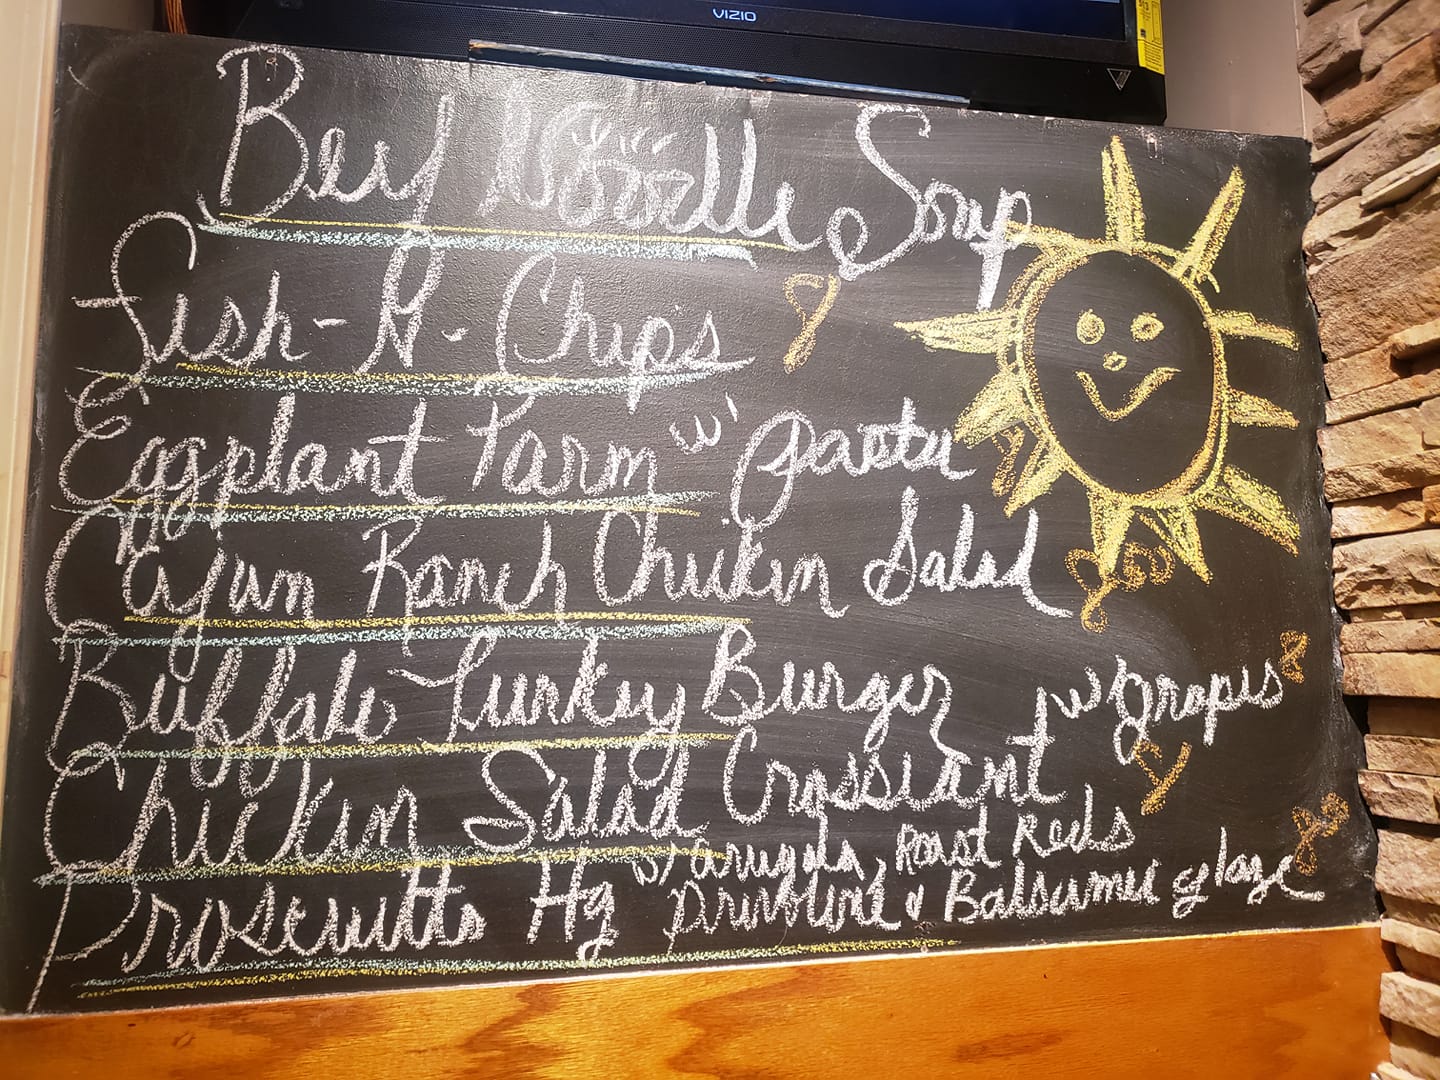 VIZIO
Beef Noodle Soup
Fish-N-Chips
Eggplant Parm w/ pasta
Cajun Ranch Chicken Salad
Buffalo Turkey Burger
Chicken Salad Crossiant w/ grapes
Proscuitto Hg w/ arugula, Roast Reds
provolone & Balsamic glaze